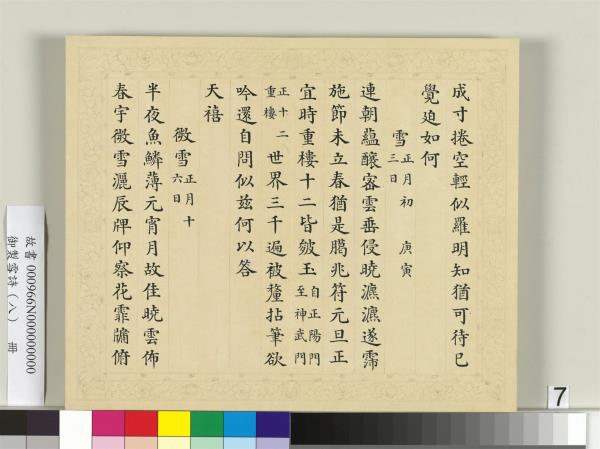 成寸捲空輕似羅明知猶可待已
覺迫如何
雪 正月初三日 庚寅
連朝蘊釀密雲垂侵曉濂濂遂霈
施節未立春猶是臈兆符元旦正
宜時重樓十二皆皴玉 自正陽門至神武門
正十二重樓 世界三千遍被釐拈筆欲
吟還自問似茲何以答
天禧
微雪 正月十六日
半夜魚鱗薄元宵月故佳曉雲佈
春宇微雪灑辰牌仰察花霏牖俯
故書 000966N000000000
御製雪詩(八) 冊
7